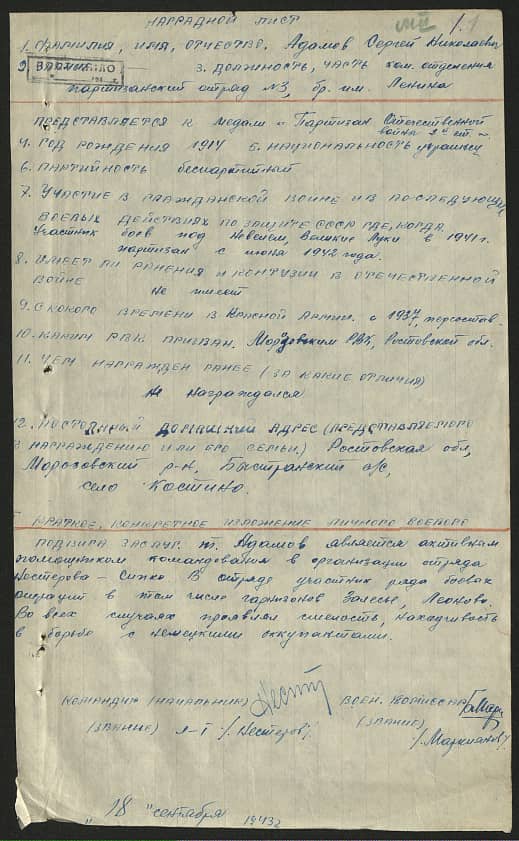 НАГРАДНОЙ ЛИСТ
1. ФАМИЛИЯ, ИМЯ, ОТЧЕСТВО. Адамов Сергей Николаевич
2. 3. ДОЛЖНОСТЬ, ЧАСТЬ ком. отделения
партизанский отряд №3, бр. им. Ленина
ПРЕДСТАВЛЯЕТСЯ к медали "Партизан Отечественной
войны 2й ст."
4. ГОД РОЖДЕНИЯ 1917 5. НАЦИОНАЛЬНОСТЬ украинец
6. ПАРТИЙНОСТЬ беспартийный
7. УЧАСТИЕ В ГРАЖДАНСКОЙ ВОЙНЕ И В ПОСЛЕДУЮЩИХ
БОЕВЫХ ДЕЙСТВИЯХ ПО ЗАЩИТЕ СССР ГДЕ, КОГДА.
Участник боев под Невелем, Великие Луки в 1941 г.
партизан с июня 1942 года.
8. ИМЕЕТ ЛИ РАНЕНИЯ И КОНТУЗИИ В ОТЕЧЕСТВЕННОЙ
ВОЙНЕ
Не имеет
9. С КАКОГО ВРЕМЕНИ В КРАСНОЙ АРМИИ. с 1937
10. КАКИМ РВК ПРИЗВАН. Морозовским РВК, Ростовской обл.
11. ЧЕМ НАГРАЖДЕН РАНЕЕ (ЗА КАКИЕ ОТЛИЧИЯ)
Не награждался
12. ПОСТОЯННЫЙ ДОМАШНИЙ АДРЕС (ПРЕДСТАВЛЯЕМОГО
К НАГРАЖДЕНИЮ ИЛИ ЕГО СЕМЬИ.) Ростовская обл,
Морозовский р-н, с/с,
село Костино.
КРАТКОЕ, КОНКРЕТНОЕ ИЗЛОЖЕНИЕ ЛИЧНОГО БОЕВОГО
ПОДВИГА ЗАСЛУГ. т. Адамов является активным
помошником командования в организации отряда
Нестерова – Сипко. В отряде участник ряда боевых
операций в том числе гарнизонов Залесье, Леоново.
Во всех случаях проявлял смелость, находчивость
в борьбе с немецкими оккупантами.
КОМАНДИР (НАЧАЛЬНИК) ВОЕН. КОМИССАР
(ЗВАНИЕ) л-т /. Нестеров/ (ЗВАНИЕ)
/. Маркианов/
"18" сентября 1943г